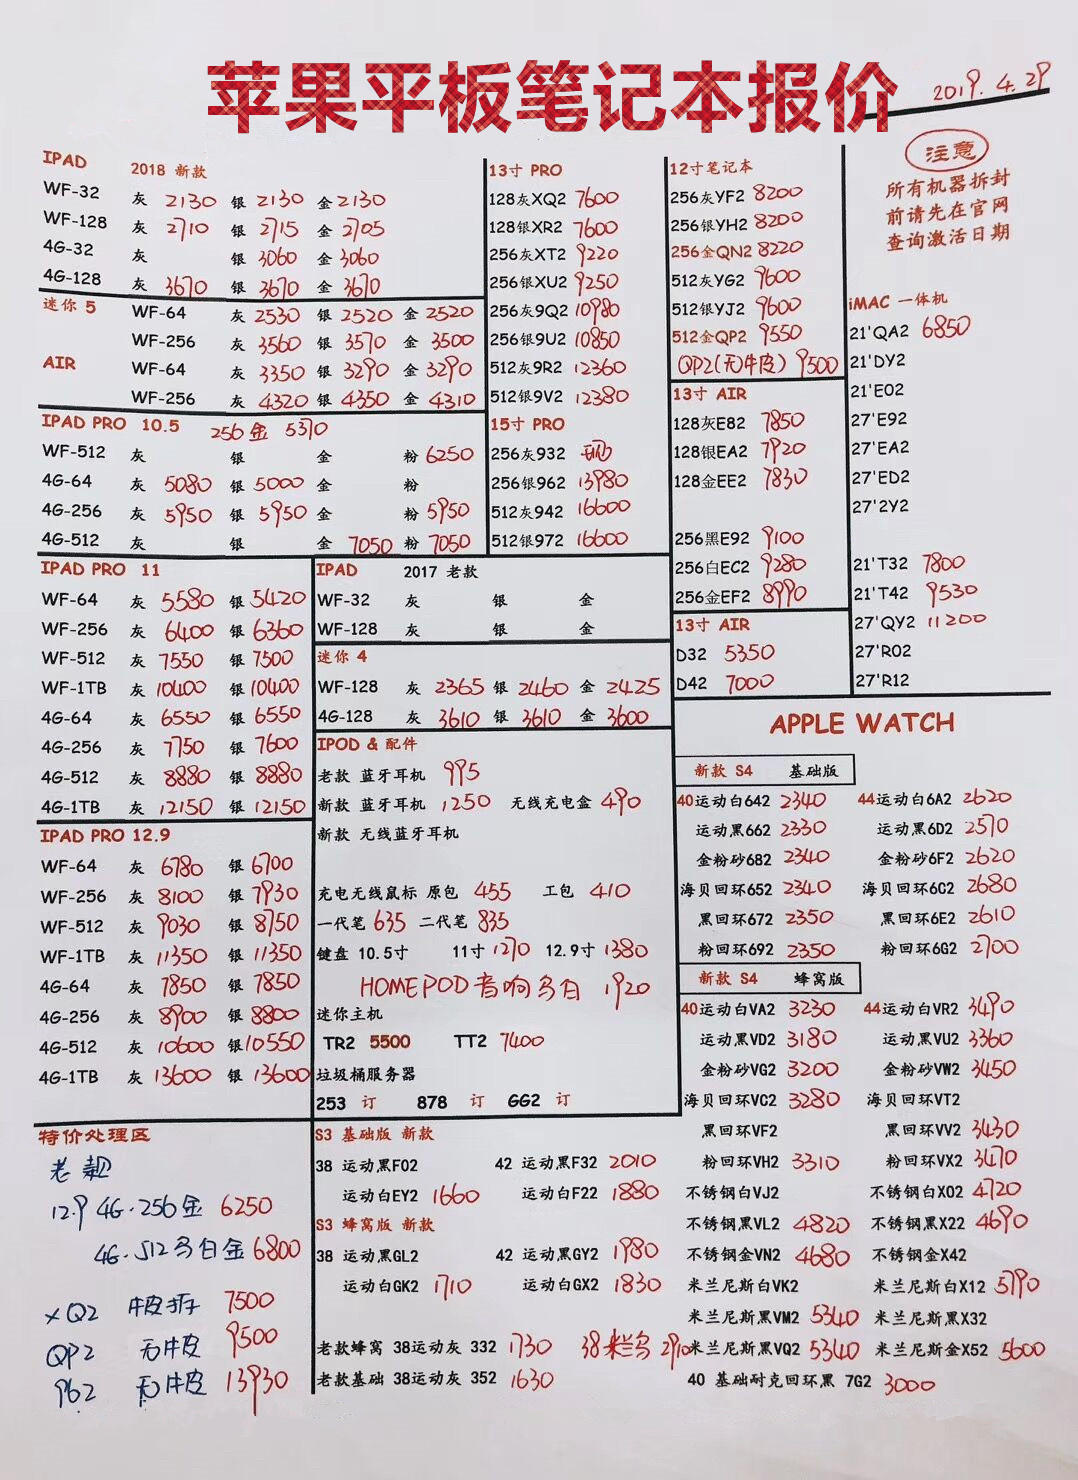 苹果平板笔记本报价
2019.4.29
注意
所有机器拆封
前请先在官网
查询激活日期
IPAD 2018 新款
WF-32 灰 2130 银 2130 金 2130
WF-128 灰 2710 银 2715 金 2705
4G-32 灰 银 3060 金 3060
4G-128 灰 3670 银 3670 金 3670
迷你 5 WF-64 灰 2530 银 2520 金 2520
WF-256 灰 3560 银 3570 金 3500
AIR WF-64 灰 3350 银 3290 金 3290
WF-256 灰 4320 银 4350 金 4310
IPAD PRO 10.5 256 金 5370
WF-512 灰 银 金 粉 6250
4G-64 灰 5080 银 5000 金 粉
4G-256 灰 5950 银 5950 金 粉 5950
4G-512 灰 银 金 7050 粉 7050
IPAD PRO 11
WF-64 灰 5580 银 5420
WF-256 灰 6400 银 6360
WF-512 灰 7550 银 7500
WF-1TB 灰 10400 银 10400
4G-64 灰 6550 银 6550
4G-256 灰 7750 银 7600
4G-512 灰 8880 银 8880
4G-1TB 灰 12150 银 12150
IPAD PRO 12.9
WF-64 灰 6780 银 6700
WF-256 灰 8100 银 7930
WF-512 灰 9030 银 8750
WF-1TB 灰 11350 银 11350
4G-64 灰 7850 银 7850
4G-256 灰 8900 银 8800
4G-512 灰 10600 银 10550
4G-1TB 灰 13600 银 13600
特价处理区
老款
12.9 4G.256金 6250
4G.512 白金 6800
XQ2 牛皮折 7500
QP2 无牛皮 9500
962 无牛皮 13930
13寸 PRO
128灰XQ2 7600
128银XR2 7600
256灰XT2 9220
256银XU2 9250
256灰9Q2 10980
256银9U2 10850
512灰9R2 12360
512银9V2 12380
15寸 PRO
256灰932
256银962 13980
512灰942 16600
512银972 16600
IPAD 2017 老款
WF-32 灰 银 金
WF-128 灰 银 金
迷你 4
WF-128 灰 2365 银 2460 金 2425
4G-128 灰 3610 银 3610 金 3600
IPOD & 配件
老款 蓝牙耳机 995
新款 蓝牙耳机 1250 无线充电盒 490
新款 无线蓝牙耳机
充电无线鼠标 原包 455 工包 410
一代笔 635 二代笔 835
键盘 10.5寸 11寸 1270 12.9寸 1380
HOMEPOD音响 白 1920
迷你主机
TR2 5500 TT2 7400
垃圾桶服务器
253 订 878 订 GG2 订
S3 基础版 新款
38 运动黑F02 42 运动黑F32 2010
运动白EY2 1660 运动白F22 1880
S3 蜂窝版 新款
38 运动黑GL2 42 运动黑GY2 1980
运动白GK2 1710 运动白GX2 1830
老款蜂窝 38运动灰 332 1730 38 米兰 2910
老款基础 38运动灰 352 1630
12寸笔记本
256灰YF2 8200
256银YH2 8200
256金QN2 8220
512灰YG2 9600
512银YJ2 9600
512金QP2 9550
QP2(无牛皮) 9500
13寸 AIR
128灰E82 7850
128银EA2 7920
128金EE2 7830
256黑E92 9100
256白EC2 9280
256金EF2 8990
13寸 AIR
D32 5350
D42 7000
iMAC 一体机
21'QA2 6850
21'DY2
21'E02
27'E92
27'EA2
27'ED2
27'2Y2
21'T32 7800
21'T42 9530
27'QY2 11200
27'R02
27'R12
APPLE WATCH
新款 S4 基础版
40运动白642 2340 44运动白6A2 2620
运动黑662 2330 运动黑6D2 2570
金粉砂682 2340 金粉砂6F2 2620
海贝回环652 2340 海贝回环6C2 2680
黑回环672 2350 黑回环6E2 2610
粉回环692 2350 粉回环6G2 2700
新款 S4 蜂窝版
40运动白VA2 3230 44运动白VR2 3490
运动黑VD2 3180 运动黑VU2 3360
金粉砂VG2 3200 金粉砂VW2 3450
海贝回环VC2 3280 海贝回环VT2
黑回环VF2 黑回环VV2 3430
粉回环VH2 3310 粉回环VX2 3470
不锈钢白VJ2 不锈钢白X02 4720
不锈钢黑VL2 4820 不锈钢黑X22 4690
不锈钢金VN2 4680 不锈钢金X42
米兰尼斯白VK2 米兰尼斯白X12 5790
米兰尼斯黑VM2 5340 米兰尼斯黑X32
米兰尼斯黑VQ2 5340 米兰尼斯金X52 5600
40 基础耐克回环黑 7G2 3000